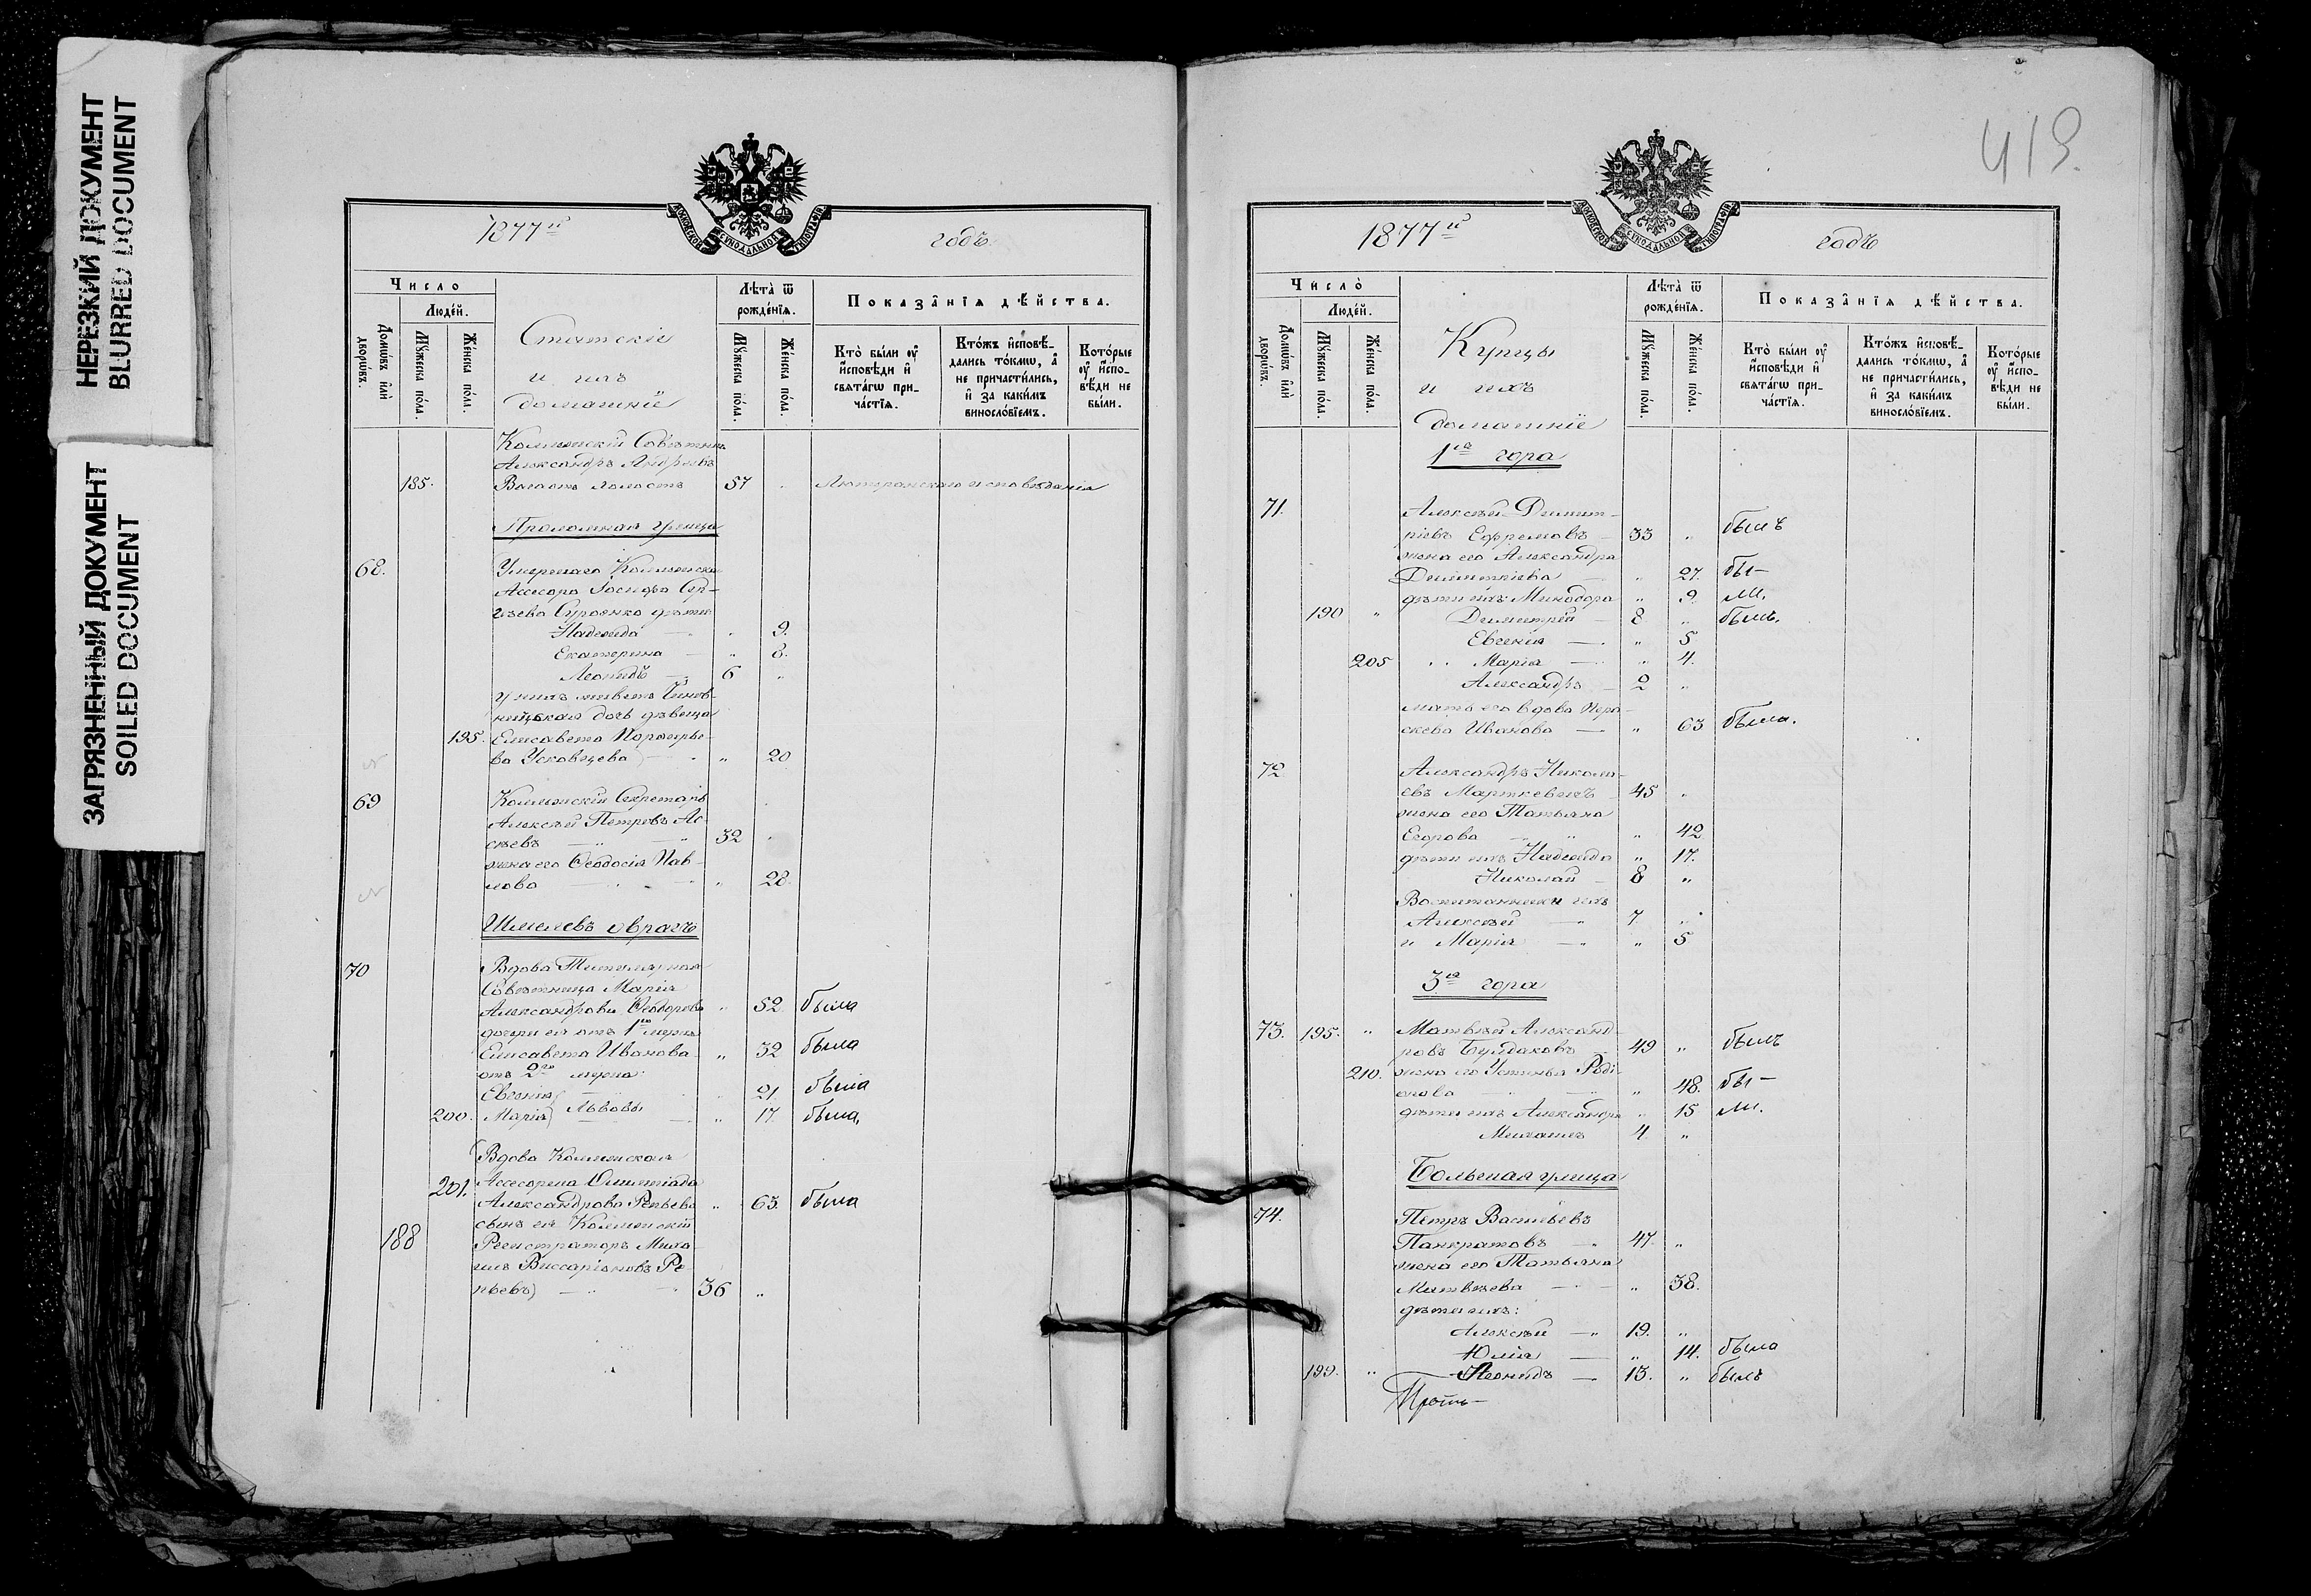 НЕРЕЗКИЙ ДОКУМЕНТ
BLURRED DOCUMENT
ЗАГРЯЗНЕННЫЙ ДОКУМЕНТ
SOILED DOCUMENT
МОСКОВСКОЙ СѴНОДАЛЬНОЙ ТИПОГРАФІИ
1877й годъ
Число
Людей.
Домѡвъ или дворѡвъ.
Мужеска пола.
Женска пола.
Статскіе
и ихъ
домашніе
Лѣта ѿ рожденїя.
Мужеска пола.
Женска пола.
Показанїѧ дѣйства.
Кто были оу исповѣди и свѧтагѡ причастїѧ.
Ктожъ исповѣдались токмѡ, а не причастились, и за какимъ винословїемъ.
Которые оу исповѣди не были.
Коллежскій Совѣтникъ
Александръ Андреевъ
185. 57 Лютеранскаго исповѣданія
Проломная улица
68. Умершаго Коллежск.
Ассесора Іосифа Сер-
гѣева дѣти:
Надежда — " 9.
Екатерина — " 8.
Леонидъ — 6 "
у нихъ живетъ Чинов-
ничьская дочь дѣвица
195. Елисавета Порфирье-
ва — " 20
69 Коллежскій Секретарь
Алексѣй Петровъ Ас-
сѣевъ — " 32 "
жена его Ѳеодосія Пав-
лова — " 28.
Шмелевъ оврагъ
70 Вдова Титулярная
Совѣтница Марія
Александрова Ѳеодорова " 52 была
дочери ея отъ 1го мужа
Елисавета Иванова " 32 была
отъ 2го мужа:
Евгенія 21. была
200. Марія Львовы — " 17. была,
Вдова Коллежская
201. Ассесорша Олимпіада
Александрова Репьева " 63. была
сынъ ея Коллежскій
188 Регистраторъ Миха-
илъ Виссаріоновъ Ре-
пьевъ) — " 36 "
419.
МОСКОВСКОЙ СѴНОДАЛЬНОЙ ТИПОГРАФІИ
1877й годъ
Число
Людей.
Домѡвъ или дворѡвъ.
Мужеска пола.
Женска пола.
Купцы
и ихъ
домашніе
Лѣта ѿ рожденїя.
Мужеска пола.
Женска пола.
Показанїѧ дѣйства.
Кто были оу исповѣди и свѧтагѡ причастїѧ.
Ктожъ исповѣдались токмѡ, а не причастились, и за какимъ винословїемъ.
Которые оу исповѣди не были.
1я гора
71. Алексѣй Димит-
ріевъ Ефремовъ — 33 " былъ
жена его Александра
Димитріева — " 27. бы-
дѣти ихъ Минодора " 9. ли.
190 " Димитрій — 8 " былъ.
Евгенія — " 5
205 " Марія — " 4.
Александръ — 2 "
мать его вдова Пара-
скева Иванова — " 63 была.
72 Александръ Никола-
евъ Марткевичъ 45 "
жена его Татьяна
Егорова — " 42
дѣти ихъ Надежда " 17.
Николай — 8 "
Воспитанники ихъ
Алексѣй — 7 "
и Марія — " 5
3я гора
73. 195. " Матвѣй Александ-
ровъ Булдаковъ 49 " былъ
210. жена его Устинья Роді-
онова — " 48. бы-
дѣти ихъ Александра " 15 ли.
Михаилъ 4 "
Большая улица
74. Петръ Васильевъ
Панкратовъ — 47. "
жена его Татьяна
Матвѣева — " 38.
дѣти ихъ:
Алексѣй — 19. "
Юлія — " 14. была
199. " Леонидъ — 13. " былъ